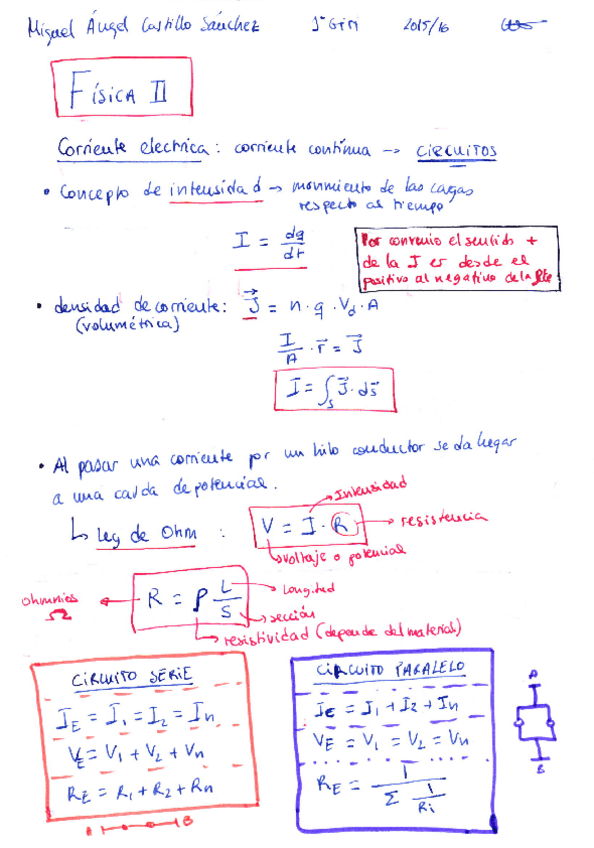 Miguel Ángel Castillo Sánchez 1º GITM 2015/16
FÍSICA II
Corriente electrica: corriente contínua → CIRCUITOS
• Concepto de intensidad → movimiento de las cargas
respecto al tiempo
I = dq/dt
Por convenio el sentido +
de la I es desde el
positivo al negativo de la
• densidad de corriente: J⃗ = n · q · Vd · A
(volumétrica)
I/A · r⃗ = J⃗
I = ∫s J⃗ · ds⃗
• Al pasar una corriente por un hilo conductor se da lugar
a una caída de potencial.
Intensidad
↳ Ley de Ohm : V = I · R → resistencia
voltaje o potencial
ohmnios Ω ← R = ρ L/S → Longitud
sección
resistividad (depende del material)
CIRCUITO SERIE
IE = I1 = I2 = In
VE = V1 + V2 + Vn
RE = R1 + R2 + Rn
A B
CIRCUITO PARALELO
IE = I1 + I2 + In
VE = V1 = V2 = Vn
RE = 1/(Σ 1/Ri)
A
B